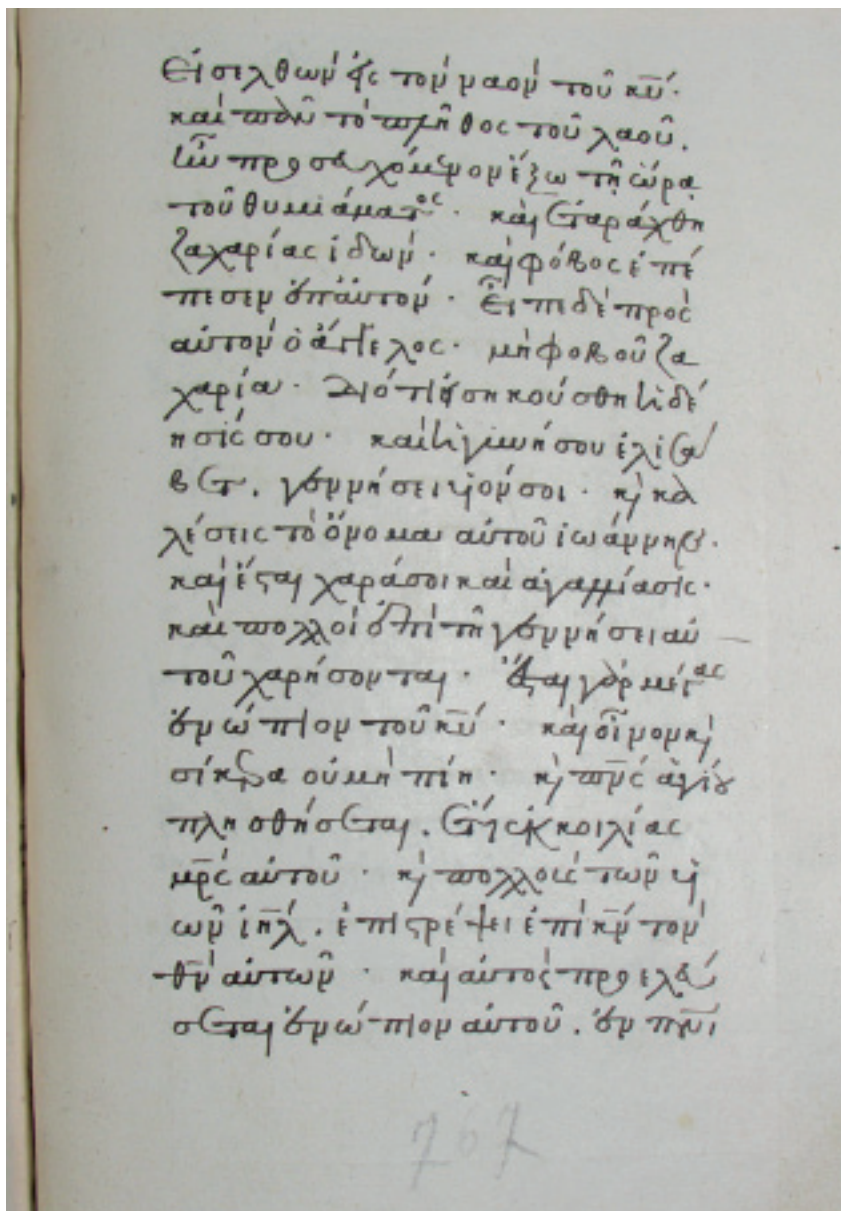 Εἰσελθὼν εἰς τὸν ναὸν τοῦ κ̅υ̅·
καὶ πᾶν τὸ πλῆθος τοῦ λαοῦ.
ἦν προσευχόμενον ἔξω τῇ ὥρᾳ
τοῦ θυμιάματος· καὶ ἐταράχθη
ζαχαρίας ἰδών· καὶ φόβος ἐπέ
πεσεν ἐπ᾽ αὐτόν· Εἶπε δὲ πρὸς
αὐτὸν ὁ ἄγγελος· μὴ φοβοῦ ζα
χαρία· διότι εἰσηκούσθη ἡ δέ
ησίς σου· καὶ ἡ γυνή σου ἐλισά
βετ. γεννήσει υἱόν σοι· κ̀ κα
λέσεις τὸ ὄνομα αὐτοῦ ἰωάννην·
καὶ ἔσται χαρά σοι καὶ ἀγαλλίασις·
καὶ πολλοὶ ἐπὶ τῇ γεννήσει αὐ
τοῦ χαρήσονται· Ἔσται γὰρ μέγας
ἐνώπιον τοῦ κ̅υ̅· καὶ οἶνον κ̀
σίκερα οὐ μὴ πίη· κ̀ π̅ν̅ς ἁγίου
πλησθήσεται. ἔτι ἐκ κοιλίας
μ̅ρ̅ς αὐτοῦ· κ̀ πολλοὺς τῶν υἱ
ῶν ἰ̅η̅λ̅. ἐπιστρέψει ἐπὶ κ̅ν̅ τὸν
θ̅ν̅ αὐτῶν· καὶ αὐτὸς προελεύ
σεται ἐνώπιον αὐτοῦ. ἐν π̅ν̅ι
767